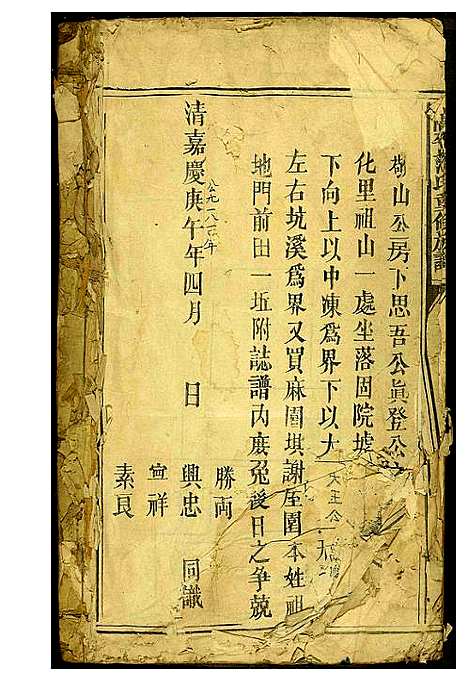 氏重修族譜
山公房下思吾公眞登公
化里祖山一處坐落固院墟
下向上以中凍爲界下以大
左右坑溪爲界又買麻園堪謝屋園本姓祖
地門前田一坵附誌譜內庶免後日之争兢
清嘉慶庚午年四月 日
公元一八一〇年
天王公
勝両
興忠 同識
祥
素良